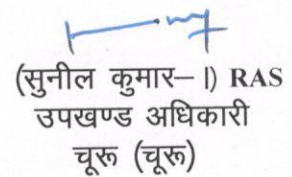 (सुनील कुमार– I) RAS
उपखण्ड अधिकारी
चूरू (चूरू)